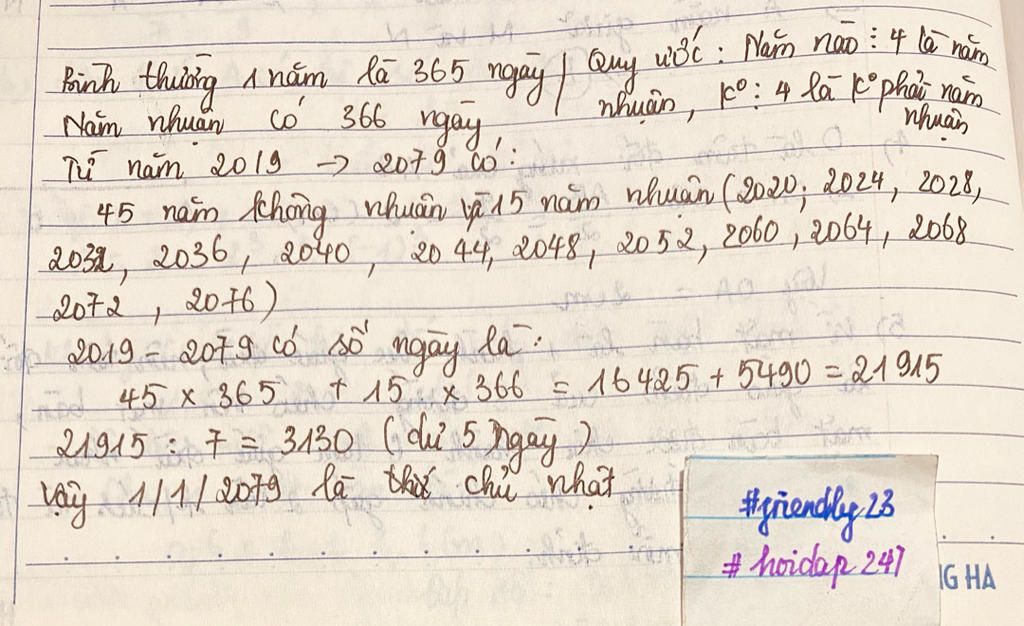 Bình thường 1 năm là 365 ngày | Quy ước: Năm nào ⋮ 4 là năm
Năm nhuận có 366 ngày | nhuận, k° ⋮ 4 là k° phải năm
nhuận
Từ năm 2019 → 2079 có:
45 năm không nhuận và 15 năm nhuận (2020; 2024, 2028,
2032, 2036, 2040, 2044, 2048, 2052, 2060, 2064, 2068
2072, 2076)
2019 = 2079 có số ngày là:
45 × 365 + 15 × 366 = 16425 + 5490 = 21915
21915 : 7 = 3130 (dư 5 ngày)
Vậy 1/1/2079 là chủ nhật
#friendly23
# hoidap 247
NG HA